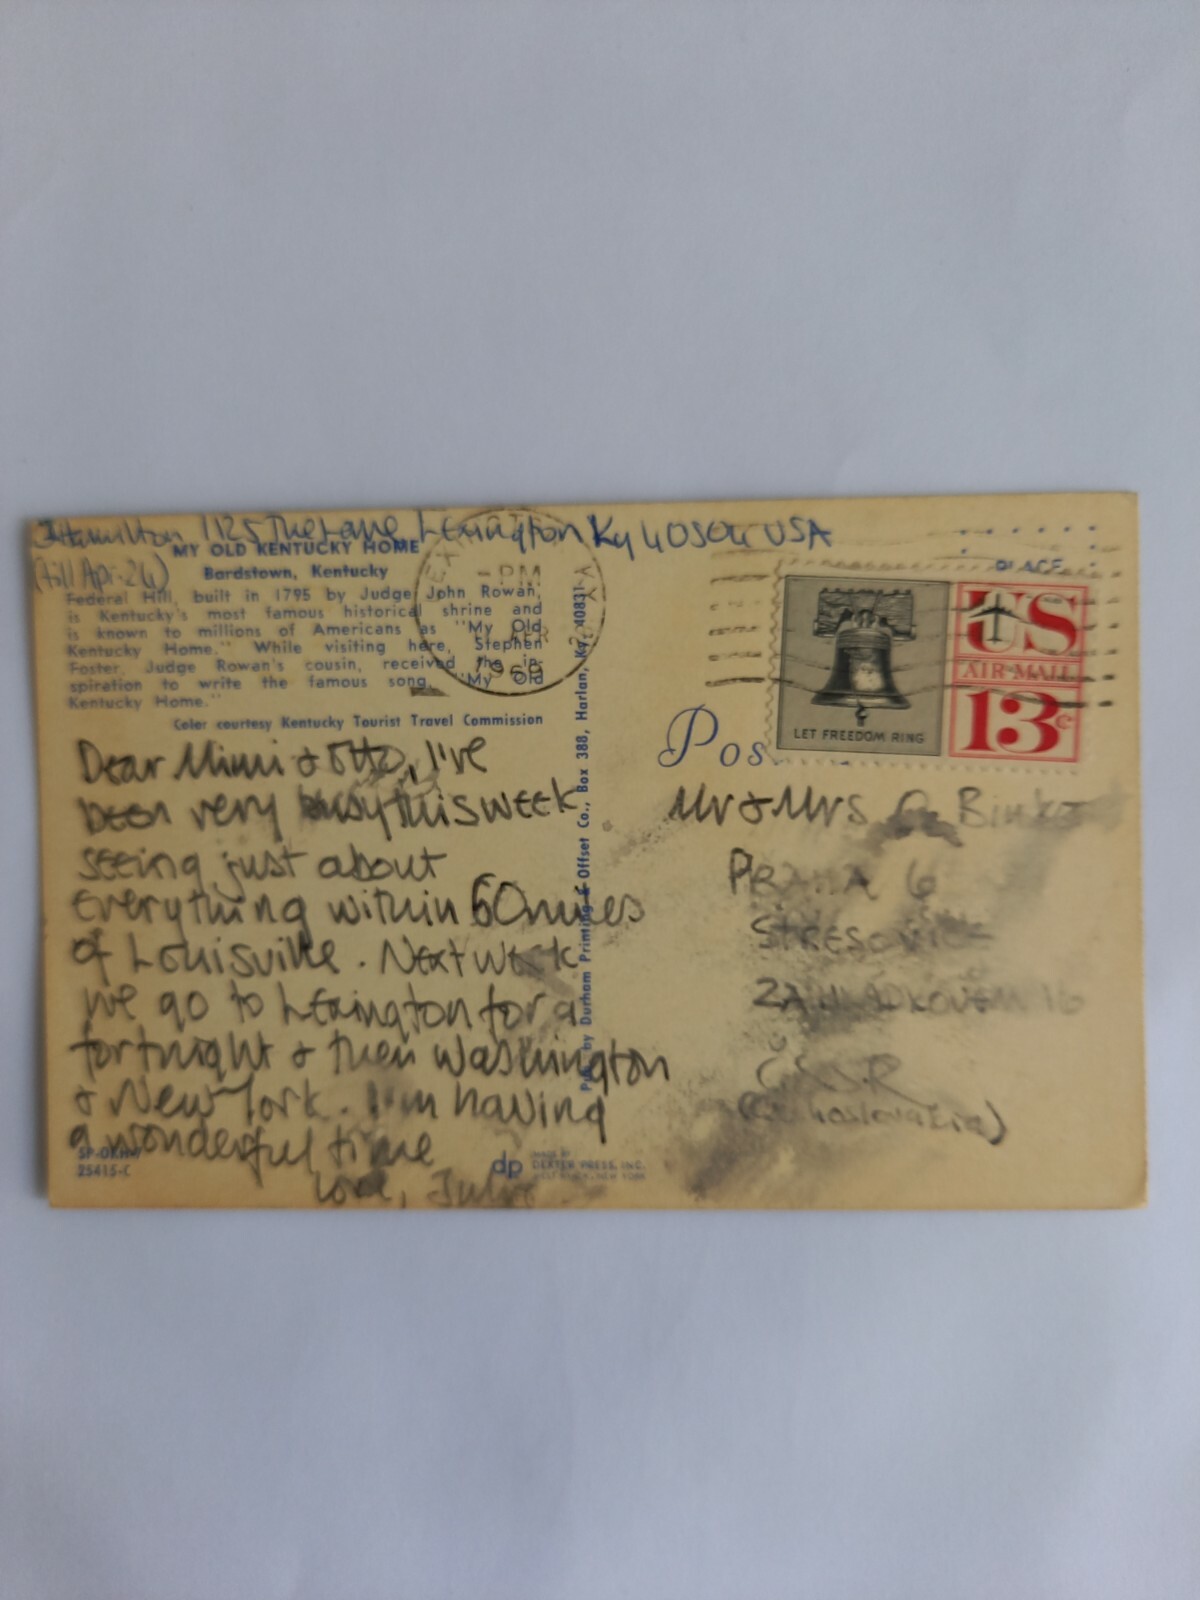 Hamilton 1125 The Lane Lexington Ky 40504 USA
(till Apr. 24)
MY OLD KENTUCKY HOME
Bardstown, Kentucky
Federal Hill, built in 1795 by Judge John Rowan,
is Kentucky's most famous historical shrine and
is known to millions of Americans as "My Old
Kentucky Home." While visiting here, Stephen
Foster, Judge Rowan's cousin, received the in-
spiration to write the famous song, "My Old
Kentucky Home."
Color courtesy Kentucky Tourist Travel Commission
Dear Mimi & Otto, I've
been very busy this week
seeing just about
everything within 60 miles
of Louisville. Next week
we go to Lexington for a
fortnight & then Washington
& New York. I'm having
a wonderful time
Love,
25415-C
PM
APR
1969
Pub. by Durham Printing & Offset Co., Box 388, Harlan, Ky. 40831
dp
MADE BY
DEXTER PRESS, INC.
WEST NYACK, NEW YORK
PLACE
LET FREEDOM RING
US
AIR MAIL
13c
Pos
Mr & Mrs O.
PRAHA 6
STRESOVICE
ČSSR
(Czechoslovakia)